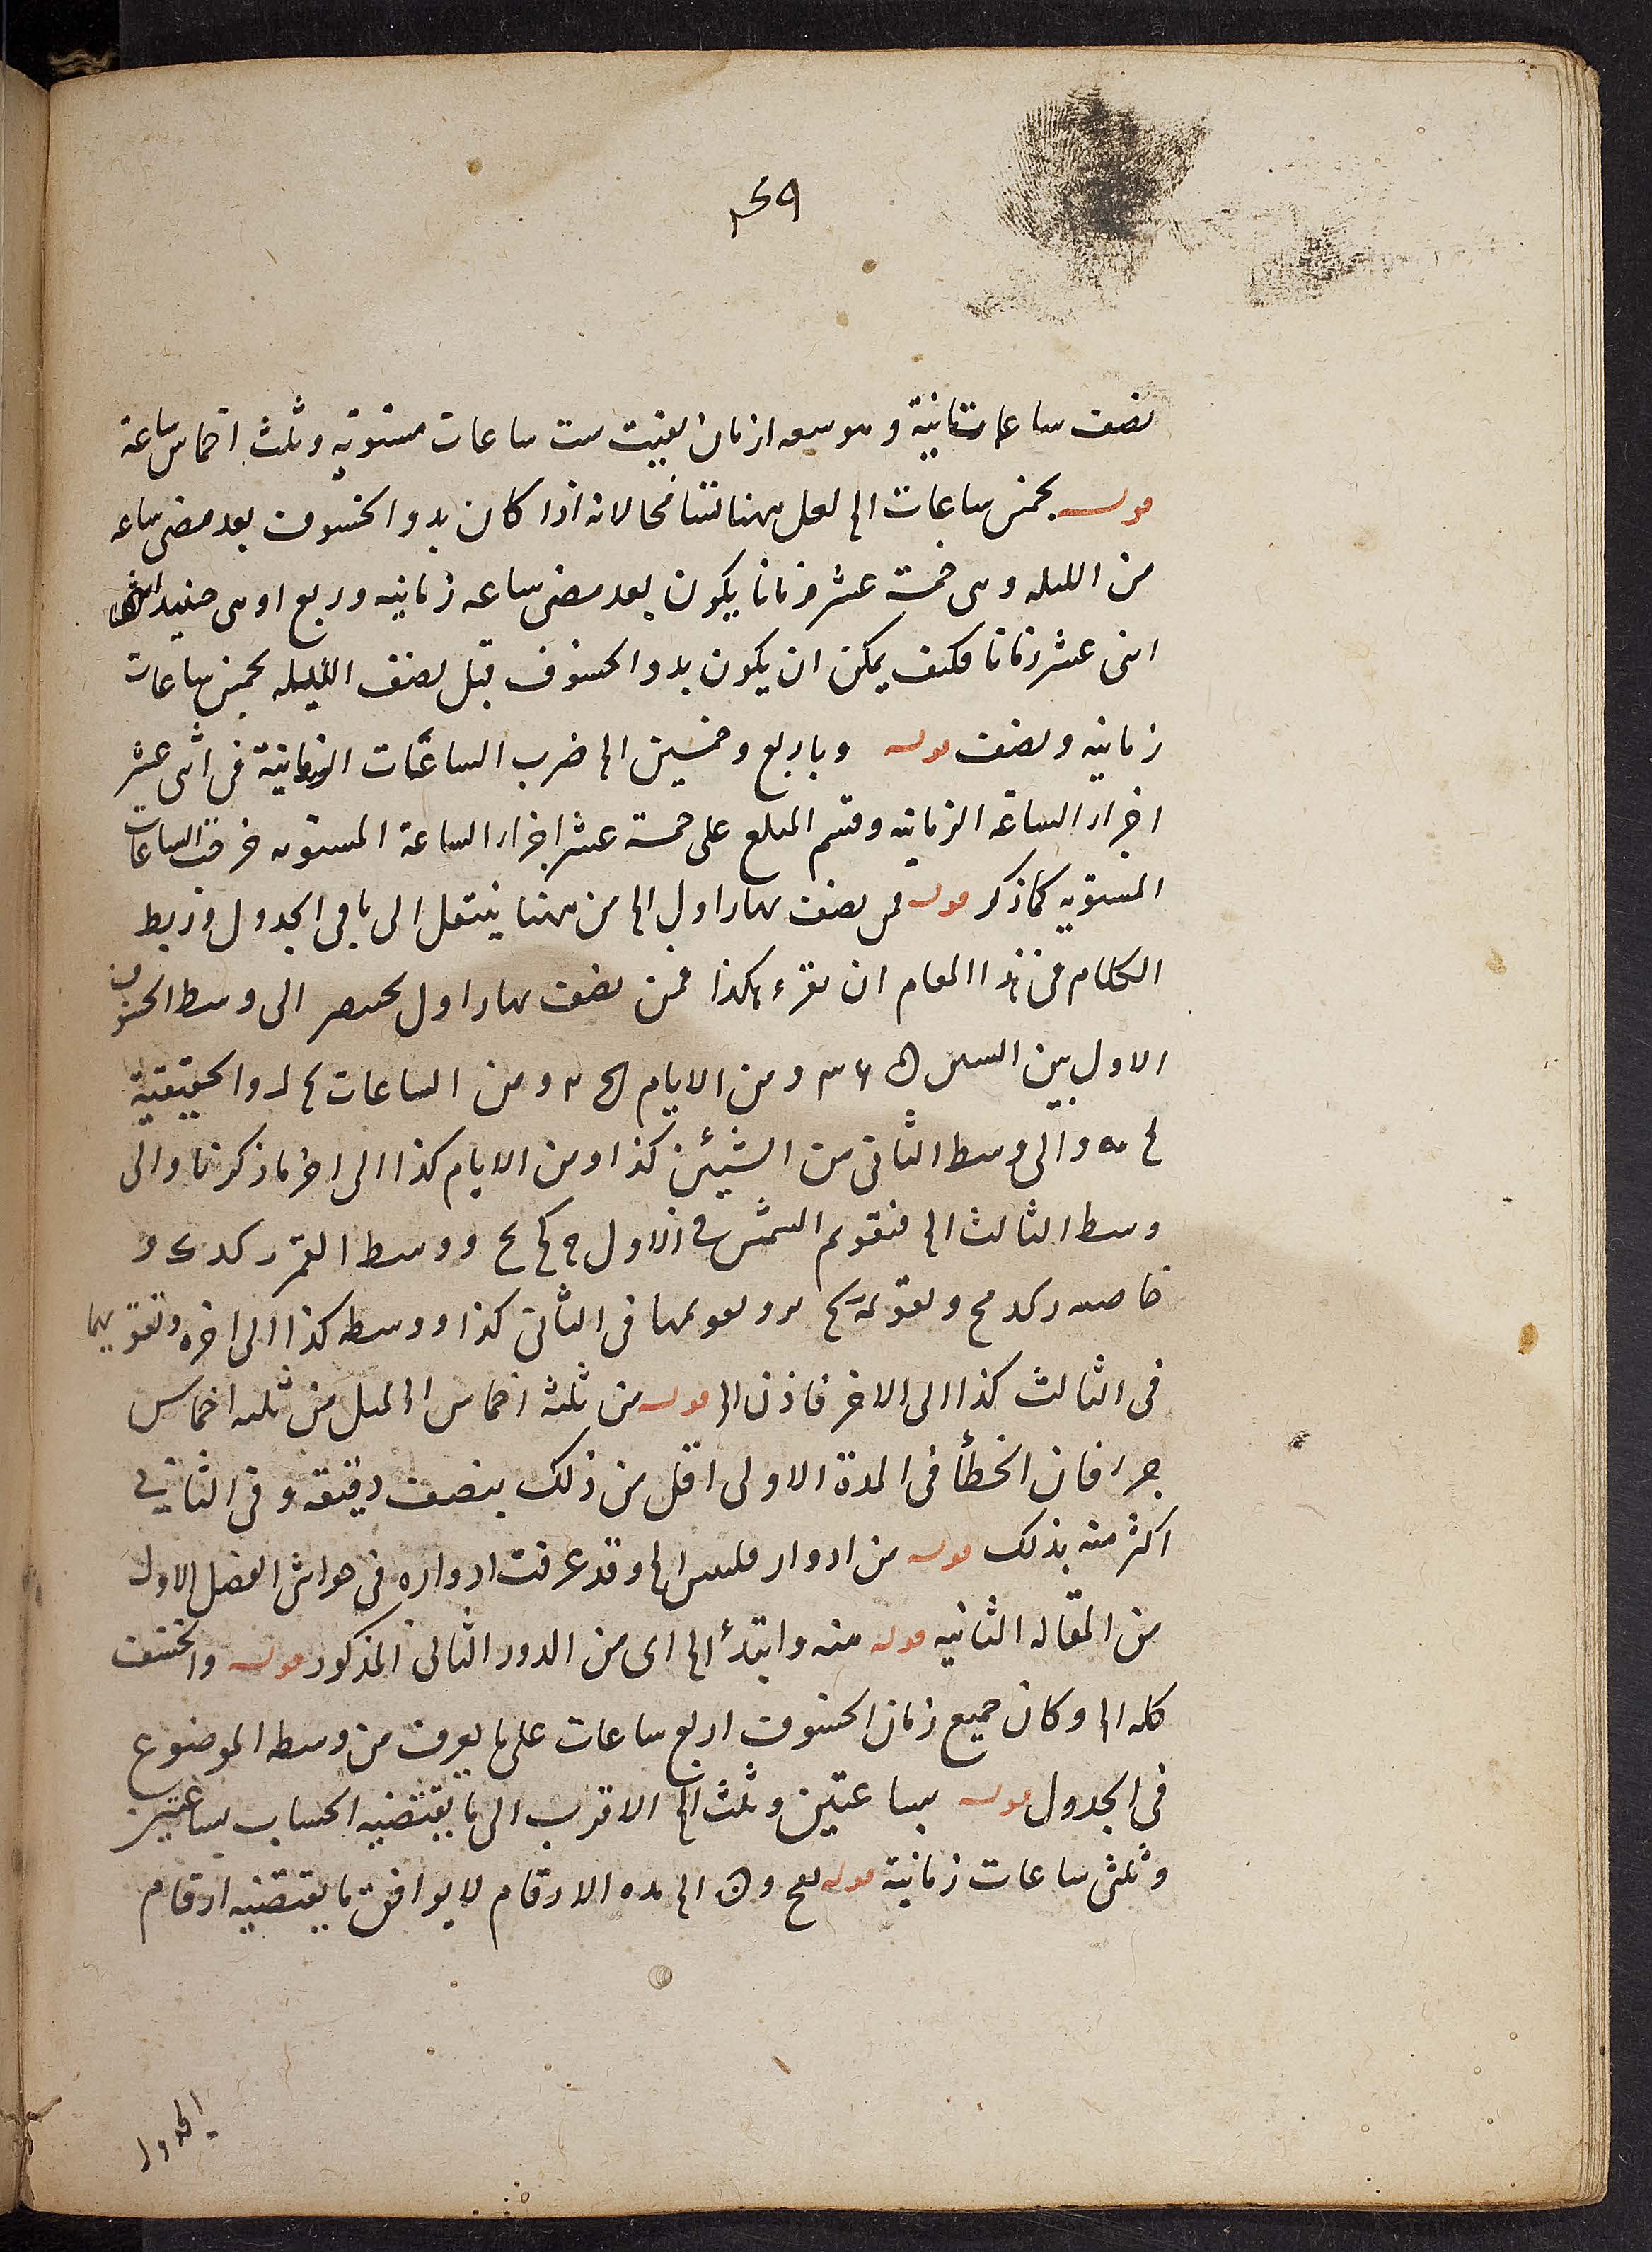 نصف ساعات زمانية و هو سبعه ازمان بقيت ست ساعات مستويه وثلث اخماس ساعة
قوله بخمس ساعات الخ لعل ههنا تسامحا لانه اذا كان بدو الخسوف بعد مضى ساعه
من الليله وهى خمسة عشر زمانا يكون بعد مضى ساعه زمانيه وربع اذ هى حينئذ
اثنى عشر زمانا فكيف يمكن ان يكون بدو الخسوف قبل نصف الليله بخمس ساعات
زمانيه ونصف قوله وباربع وخمسين الخ ضرب الساعات الزمانية فى اثنى عشر
اجزاء الساعة الزمانيه وقسم المبلغ على خمسة عشر اجزاء الساعة المستويه خرجت الساعات
المستويه كما ذكر قوله فمن نصف نهار اول الخ من ههنا ينتقل الى باقى الجدول وربط
الكلام فى هذا المقام ان يقرء هكذا فمن نصف نهار اول بختنصر الى وسط الخسوف
الاول بين السنين ومن الايام ومن الساعات والحقيقية
والى وسط الثانى من السنين كذا ومن الايام كذا الى اخر ما ذكرنا والى
وسط الثالث الخ فتقويم الشمس فى الاول ووسط القمر ر كد و
خاصته ر كد مح وتقويمه وتقويمها فى الثانى كذا ووسطه كذا الى اخره وتقويمها
فى الثالث كذا الى الاخر فاذن الخ قوله من ثلثة اخماس الخ من ثلثه اخماس
جزء فان الخطأ فى المدة الاولى اقل من ذلك بنصف دقيقه وفى الثانى
اكثر منه بذلك قوله من ادوار فلبس الخ وقد عرفت ادواره فى حواش الفصل الاول
من المقاله الثانيه قوله منه وابتدأ الخ اى من الدور الثانى المذكور قوله وانخسف
كله الخ وكان جميع زمان الخسوف اربع ساعات على ما يعرف من وسطه الموضوع
فى الجدول قوله بساعتين وثلث الخ الاقرب الى ما يقتضيه الحساب بساعتين
وثلثى ساعات زمانية قوله الخ هذه الارقام لا يوافق ما يقتضيه ارقام
الجدول